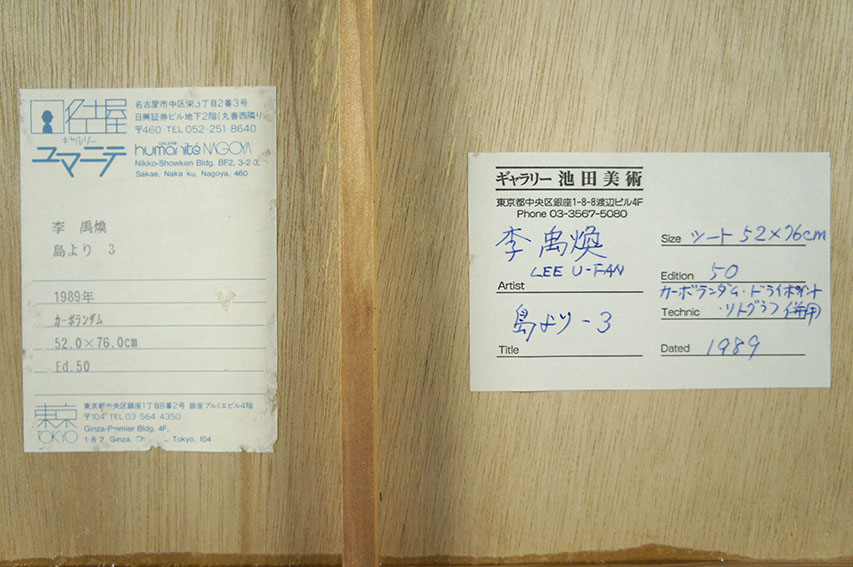 名古屋
ギャルリー
ユマニテ
名古屋市中区栄3丁目2番3号
日興証券ビル地下2階(丸善西隣り)
〒460 TEL 052-251 8640
GALERIE
humanité NAGOYA
Nikko-Showken Bldg. BF2, 3-2-3,
Sakae, Naka ku, Nagoya, 460
李 禹煥
島より 3
1989年
カーボランダム
52.0×76.0cm
Ed.50
東京
TOKYO
東京都中央区銀座1丁目8番2号 銀座プルミエビル4階
〒104 TEL 03-564 4350
Ginza-Premier Bldg. 4F,
1 8 2, Ginza, Tokyo, 104
ギャラリー 池田美術
東京都中央区銀座1-8-8渡辺ビル4F
Phone 03-3567-5080
李禹煥
LEE U-FAN
Artist
島より-3
Title
Size シート 52×76cm
Edition 50
カーボランダム・ドライポイント
Technic ・リトグラフ併用
Dated 1989